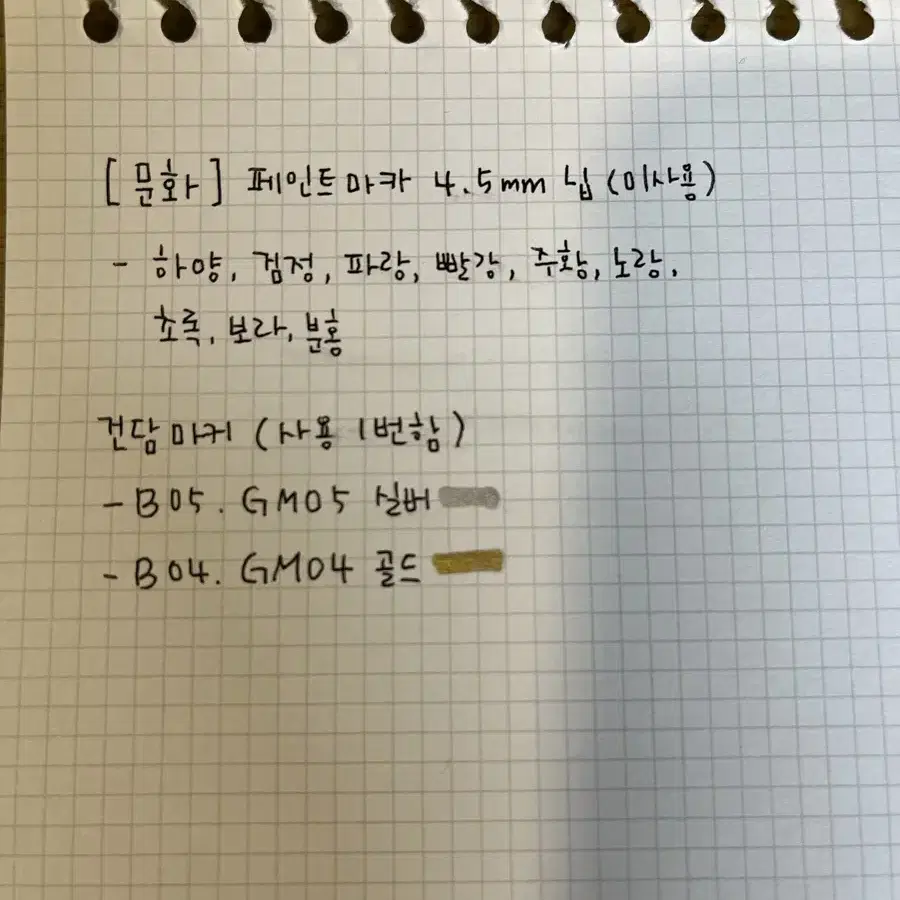 [문화] 페인트마카 4.5mm 닙 (미사용)
- 하양, 검정, 파랑, 빨강, 주황, 노랑,
초록, 보라, 분홍
건담마커 (사용 1번함)
- B05. GM05 실버
- B04. GM04 골드